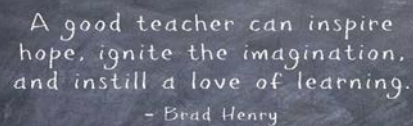 A good teacher can inspire
hope, ignite the imagination,
and instill a love of learning.
- Brad Henry